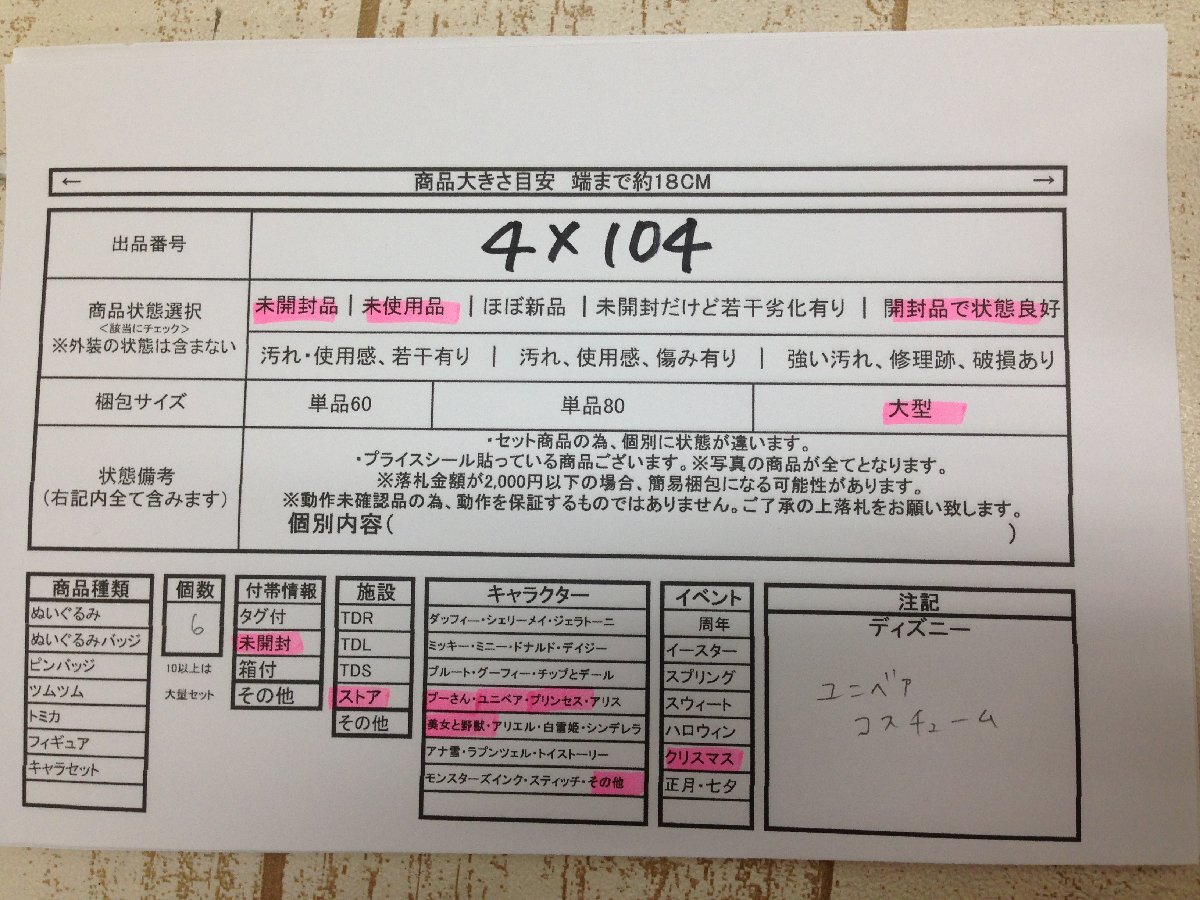 ← 商品大きさ目安 端まで約18CM →
出品番号 4×104
商品状態選択
<該当にチェック>
※外装の状態は含まない
未開封品 | 未使用品 | ほぼ新品 | 未開封だけど若干劣化有り | 開封品で状態良好
汚れ・使用感、若干有り | 汚れ、使用感、傷み有り | 強い汚れ、修理跡、破損あり
梱包サイズ 単品60 単品80 大型
状態備考
(右記内全て含みます)
・セット商品の為、個別に状態が違います。
・プライスシール貼っている商品ございます。※写真の商品が全てとなります。
※落札金額が2,000円以下の場合、簡易梱包になる可能性があります。
※動作未確認品の為、動作を保証するものではありません。ご了承の上落札をお願い致します。
個別内容( )
商品種類
ぬいぐるみ
ぬいぐるみバッジ
ピンバッジ
ツムツム
トミカ
フィギュア
キャラセット
個数
6
10以上は
大量セット
付帯情報
タグ付
未開封
箱付
その他
施設
TDR
TDL
TDS
ストア
その他
キャラクター
ダッフィー・シェリーメイ・ジェラトーニ
ミッキー・ミニー・ドナルド・デイジー
プルート・グーフィー・チップとデール
プーさん・ユニベア・プリンセス・アリス
美女と野獣・アリエル・白雪姫・シンデレラ
アナ雪・ラプンツェル・トイストーリー
モンスターズインク・スティッチ・その他
イベント
周年
イースター
スプリング
スウィート
ハロウィン
クリスマス
正月・七夕
注記
ディズニー
ユニベア
コスチューム